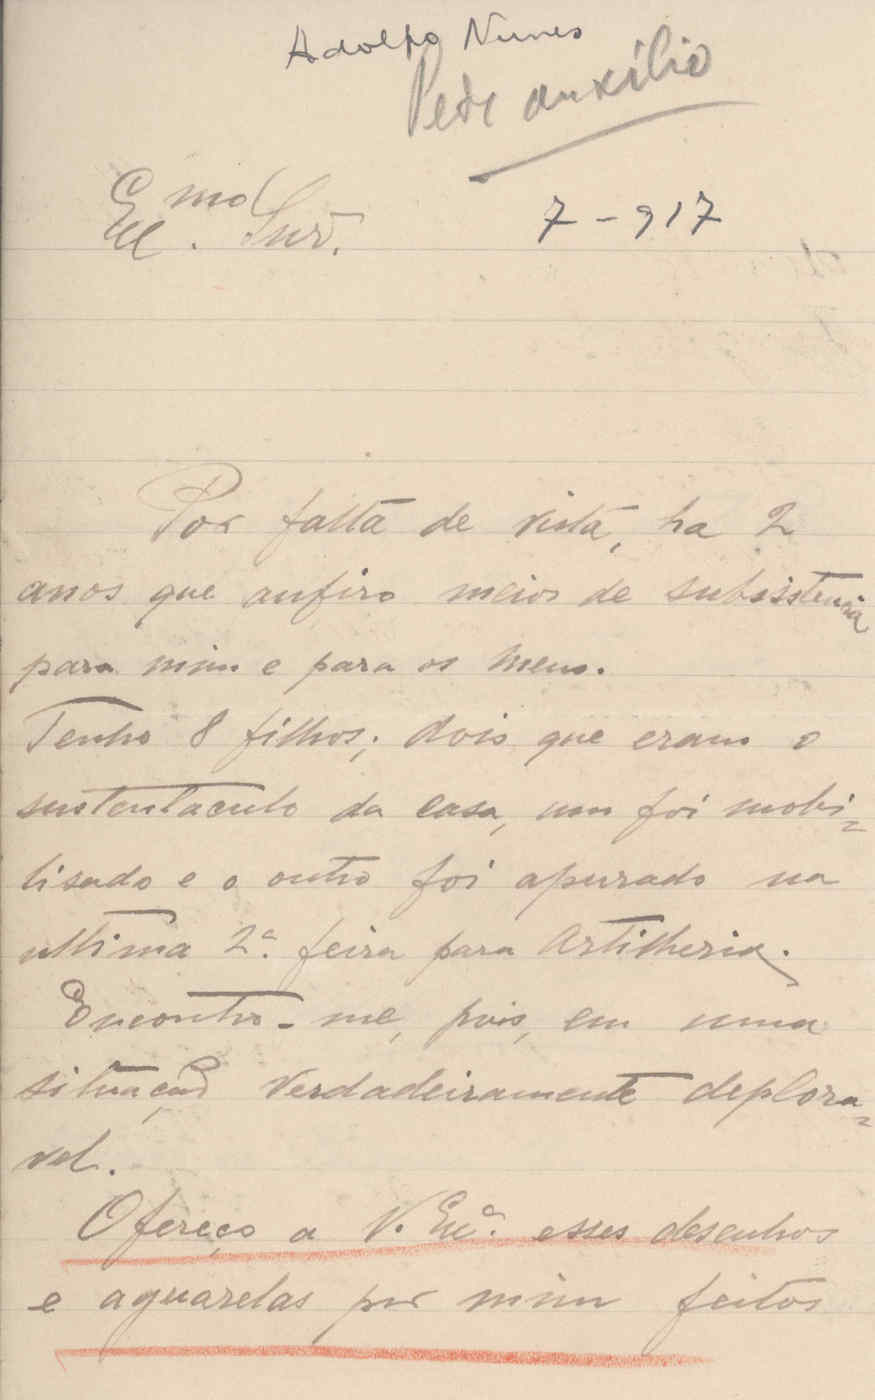 Adolfo Nunes
Pede auxílio
Ex.mo Snr.
7-917
Por falta de vista, ha 2
anos que aufiro meios de subsistencia
para mim e para os meus.
Tenho 8 filhos; dois que eram o
sustentaculo da casa, um foi mobi=
lisado e o outro foi apurado na
ultima 2ª feira para Artilheria.
Encontro-me, pois, em uma
situação verdadeiramente deplora=
vel.
Ofereço a V. Exª. esses desenhos
e aguarelas por mim feitos